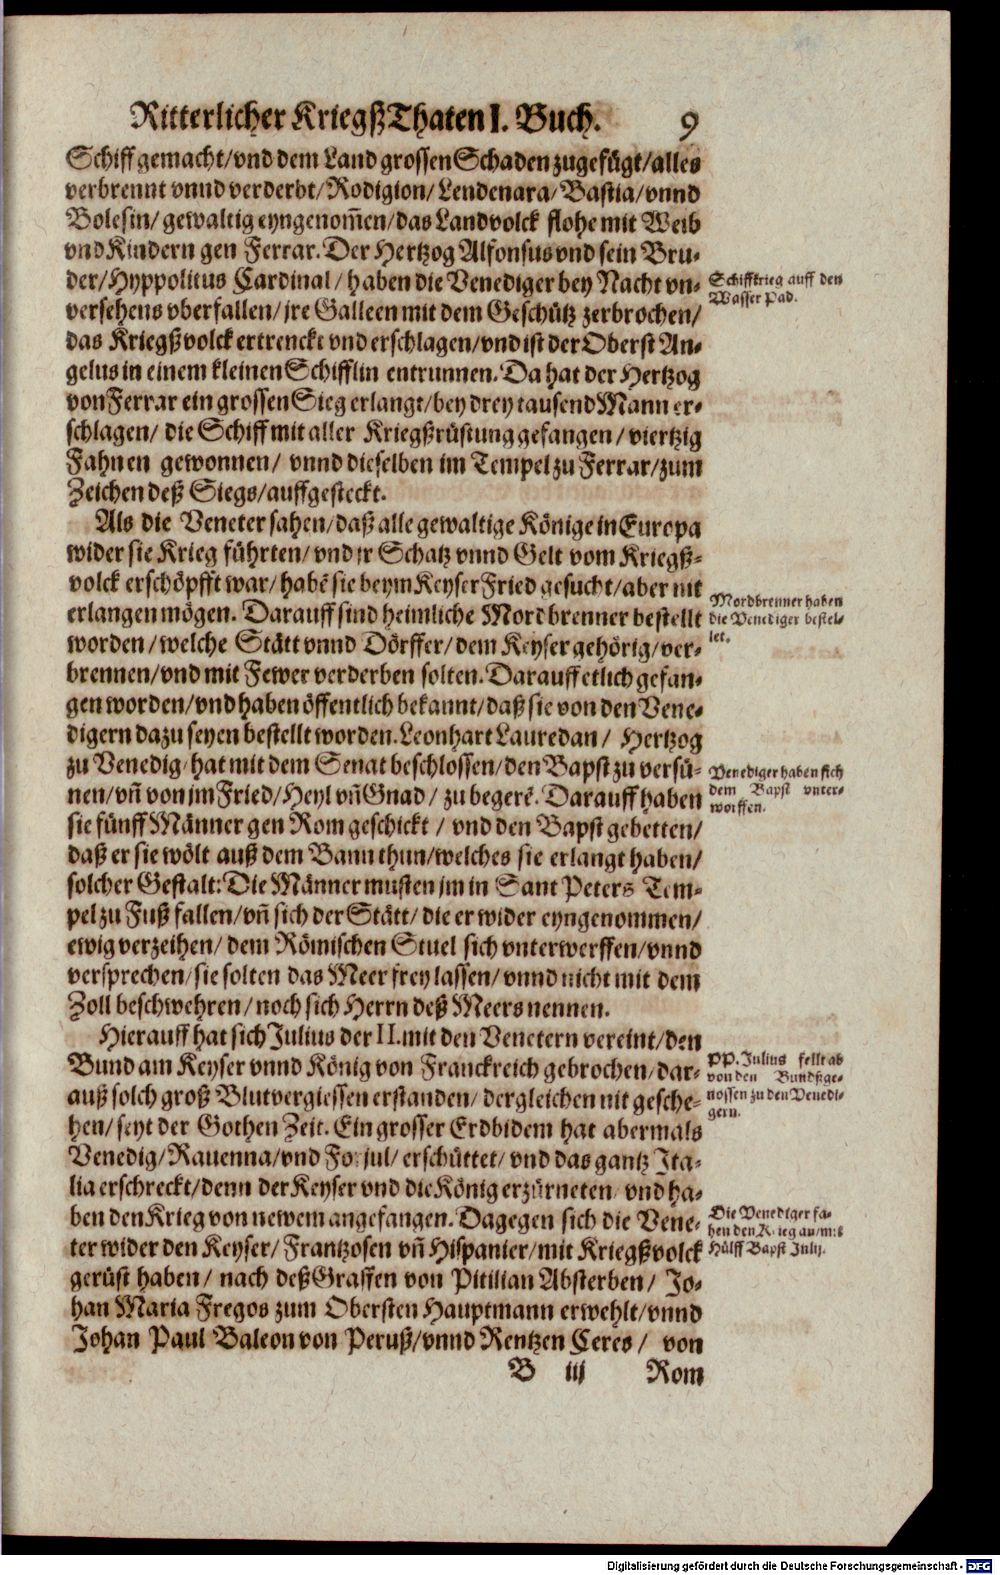 Ritterlicher KriegßThaten I. Buch. 9
Schiff gemacht/vnd dem Land grossen Schaden zugefügt/alles
verbrennt vnnd verderbt/Rodigion/Lendenara/Bastia/vnnd
Bolesin/gewaltig eyngenom̄en/das Landvolck flohe mit Weib
vnd Kindern gen Ferrar. Der Hertzog Alfonsus vnd sein Bru-
der/Hyppolitus Cardinal/haben die Venediger bey Nacht vn-
versehens vberfallen/jre Galleen mit dem Geschütz zerbrochen/
das Kriegßvolck ertrenckt vnd erschlagen/vnd ist der Oberst An-
gelus in einem kleinen Schifflin entrunnen. Da hat der Hertzog
von Ferrar ein grossen Sieg erlangt/bey drey tausend Mann er-
schlagen/die Schiff mit aller Kriegßrüstung gefangen/viertzig
Fahnen gewonnen/vnnd dieselben im Tempel zu Ferrar/zum
Zeichen deß Siegs/auffgesteckt.
Schiffkrieg auff den
Wasser Pad.
Als die Veneter sahen/daß alle gewaltige Könige in Europa
wider sie Krieg führten/vnd jr Schatz vnnd Gelt vom Kriegß-
volck erschöpfft war/habē sie beym Keyser Fried gesucht/aber nit
erlangen mögen. Darauff sind heimliche Mordbrenner bestellt
worden/welche Stätt vnnd Dörffer/dem Keyser gehörig/ver-
brennen/vnd mit Fewer verderben solten. Darauff etlich gefan-
gen worden/vnd haben öffentlich bekannt/daß sie von den Vene-
digern dazu seyen bestellt worden. Leonhart Lauredan/Hertzog
zu Venedig/hat mit dem Senat beschlossen/den Bapst zu versü-
nen/vn̄ von jm Fried/Heyl vn̄ Gnad/zu begerē. Darauff haben
sie fünff Männer gen Rom geschickt/vnd den Bapst gebetten/
daß er sie wölt auß dem Bann thun/welches sie erlangt haben/
solcher Gestalt: Die Männer musten jm in Sant Peters Tem-
pel zu Fuß fallen/vn̄ sich der Stätt/die er wider eyngenommen/
ewig verzeihen/dem Römischen Stuel sich vnterwerffen/vnnd
versprechen/sie solten das Meer frey lassen/vnnd nicht mit dem
Zoll beschwehren/noch sich Herrn deß Meers nennen.
Mordbrenner haben
die Venediger bestel-
let.
Venediger haben sich
dem Bapst vnter-
worffen.
Hierauff hat sich Julius der II. mit den Venetern vereint/den
Bund am Keyser vnnd König von Franckreich gebrochen/dar-
auß solch groß Blutvergiessen erstanden/dergleichen nit gesche-
hen/seyt der Gothen Zeit. Ein grosser Erdbidem hat abermals
Venedig/Rauenna/vnd Forjul/erschüttet/vnd das gantz Ita-
lia erschreckt/denn der Keyser vnd die König erzürneten/vnd ha-
ben den Krieg von newem angefangen. Dagegen sich die Vene-
ter wider den Keyser/Frantzosen vn̄ Hispanier/mit Kriegßvolck
gerüst haben/nach deß Graffen von Pitilian Absterben/Jo-
han Maria Fregos zum Obersten Hauptmann erwehlt/vnnd
Johan Paul Baleon von Peruß/vnnd Rentzen Ceres/von
PP. Julius fellt ab
von den Bundßge-
nossen zu den Venedi-
gern.
Die Venediger fa-
hen den Krieg an/mit
Hülff Bapst Julij.
B iij Rom
Digitalisierung gefördert durch die Deutsche Forschungsgemeinschaft - DFG